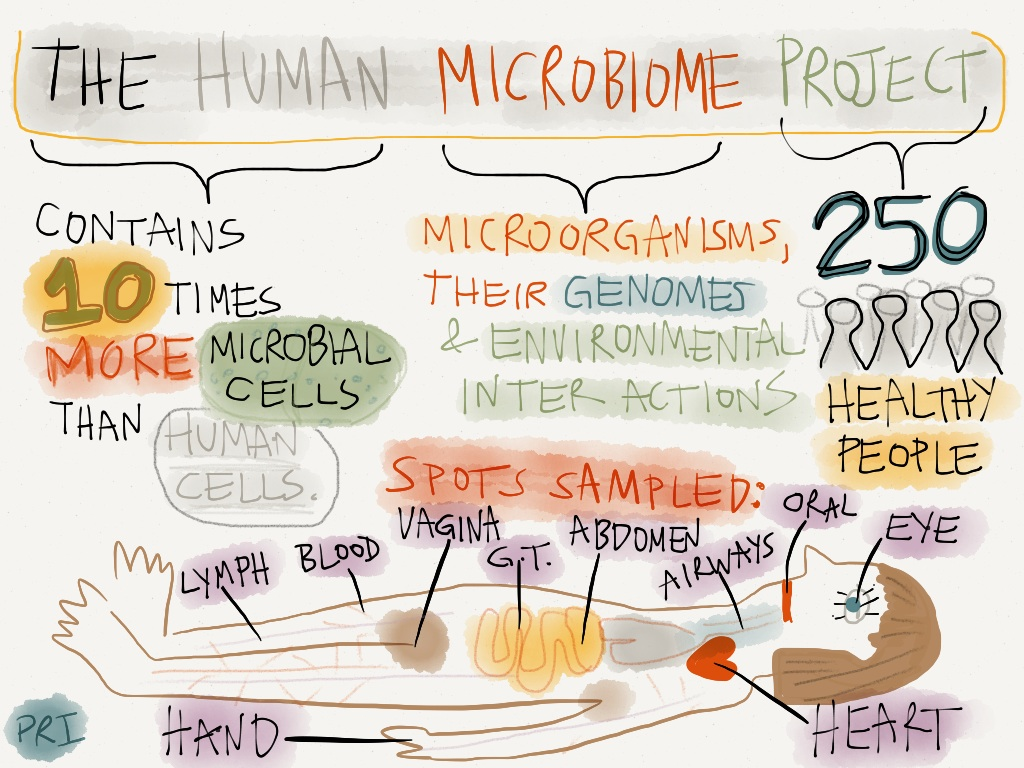 THE HUMAN MICROBIOME PROJECT
CONTAINS
10 TIMES
MORE MICROBIAL
CELLS
THAN HUMAN
CELLS.
MICROORGANISMS,
THEIR GENOMES
& ENVIRONMENTAL
INTERACTIONS
250
HEALTHY
PEOPLE
SPOTS SAMPLED:
LYMPH
BLOOD
VAGINA
G.T.
ABDOMEN
AIRWAYS
ORAL
EYE
HAND
HEART
PRI